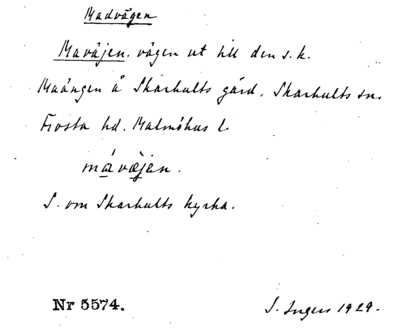 Madvägen
Maväjen. vägen ut till den s.k.
Maängen å Skarhults gård, Skarhults sn.
Frosta hd. Malmöhus l
måväjän.
S. om Skarhults kyrka.
Nr 5574. I. Ingers 1929.